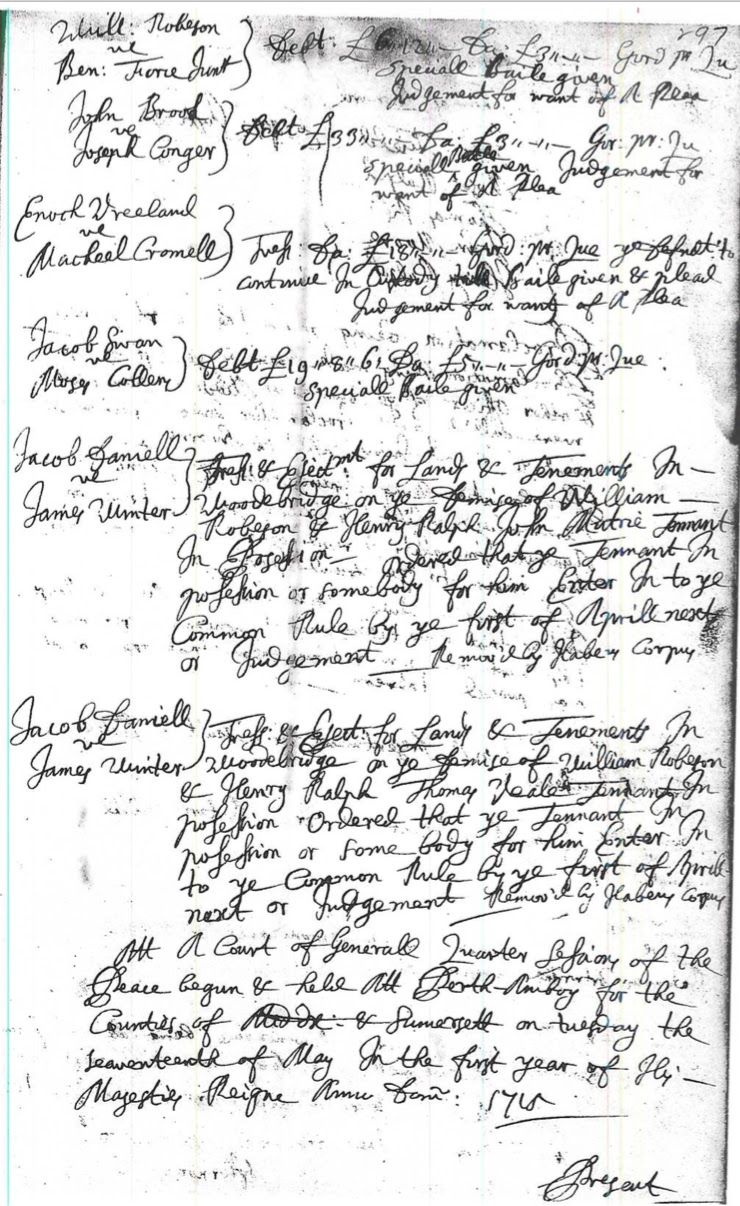 297
Will: Robeson
vs
Ben: Force Junr
Debt: £6"12"- Da: £3"-"- Gord pr Ju
Speciall Baile given
Judgement for want of A Plea
John Brood
vs
Joseph Conger
Debt £33"-"- Da: £3"-"- Gor: pr: Ju
Speciall Baile given Judgement for
want of A Plea
Enoch Vreeland
vs
Macheel Cromell
Tress: Da: £18"-"- Gord: pr: Jue ye Defndt: to
continue In Custody till Baile given & plead
Judgement for want of A Plea
Jacob Swan
vs
Moses Collers
Debt £19"8"6: Da: £5"-"- Gord: pr: Jue:
Speciall Baile given
Jacob Daniell
vs
James Winter
Tress: & Ejectmt for Lands & Tenements In
Woodebridge on ye Demise of William
Robeson & Henry Ralph John Tennant
In Posession Ordered that ye Tennant In
possession or somebody for him Enter In to ye
Common Rule by ye first of Aprill next
or Judgement Remov'd by Habeus Corpus
Jacob Daniell
vs
James Winter
Tress: & Eject: for Lands & Tenements In
Woodebridge on ye Demise of William Robeson
& Henry Ralph Thomas Veale Tennant In
possession Ordered that ye Tennant In
possession or some body for him Enter In
to ye Common Rule by ye first of Aprill
next or Judgement Remov'd by Habeus Corpus
Att A Court of Generall Quarter Sessions of the
Peace begun & held Att Perth Amboy for the
Counties of Middx: & Sumersett on tuesday the
seaventeenth of May In the first year of His
Majesties Reigne Anno Dom: 1715
Present